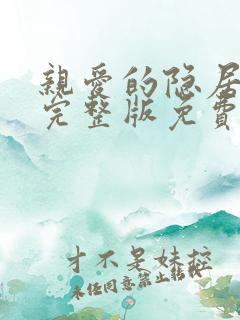 親愛的隐居
完整版免費
才不是妹控
未经同意禁止转载